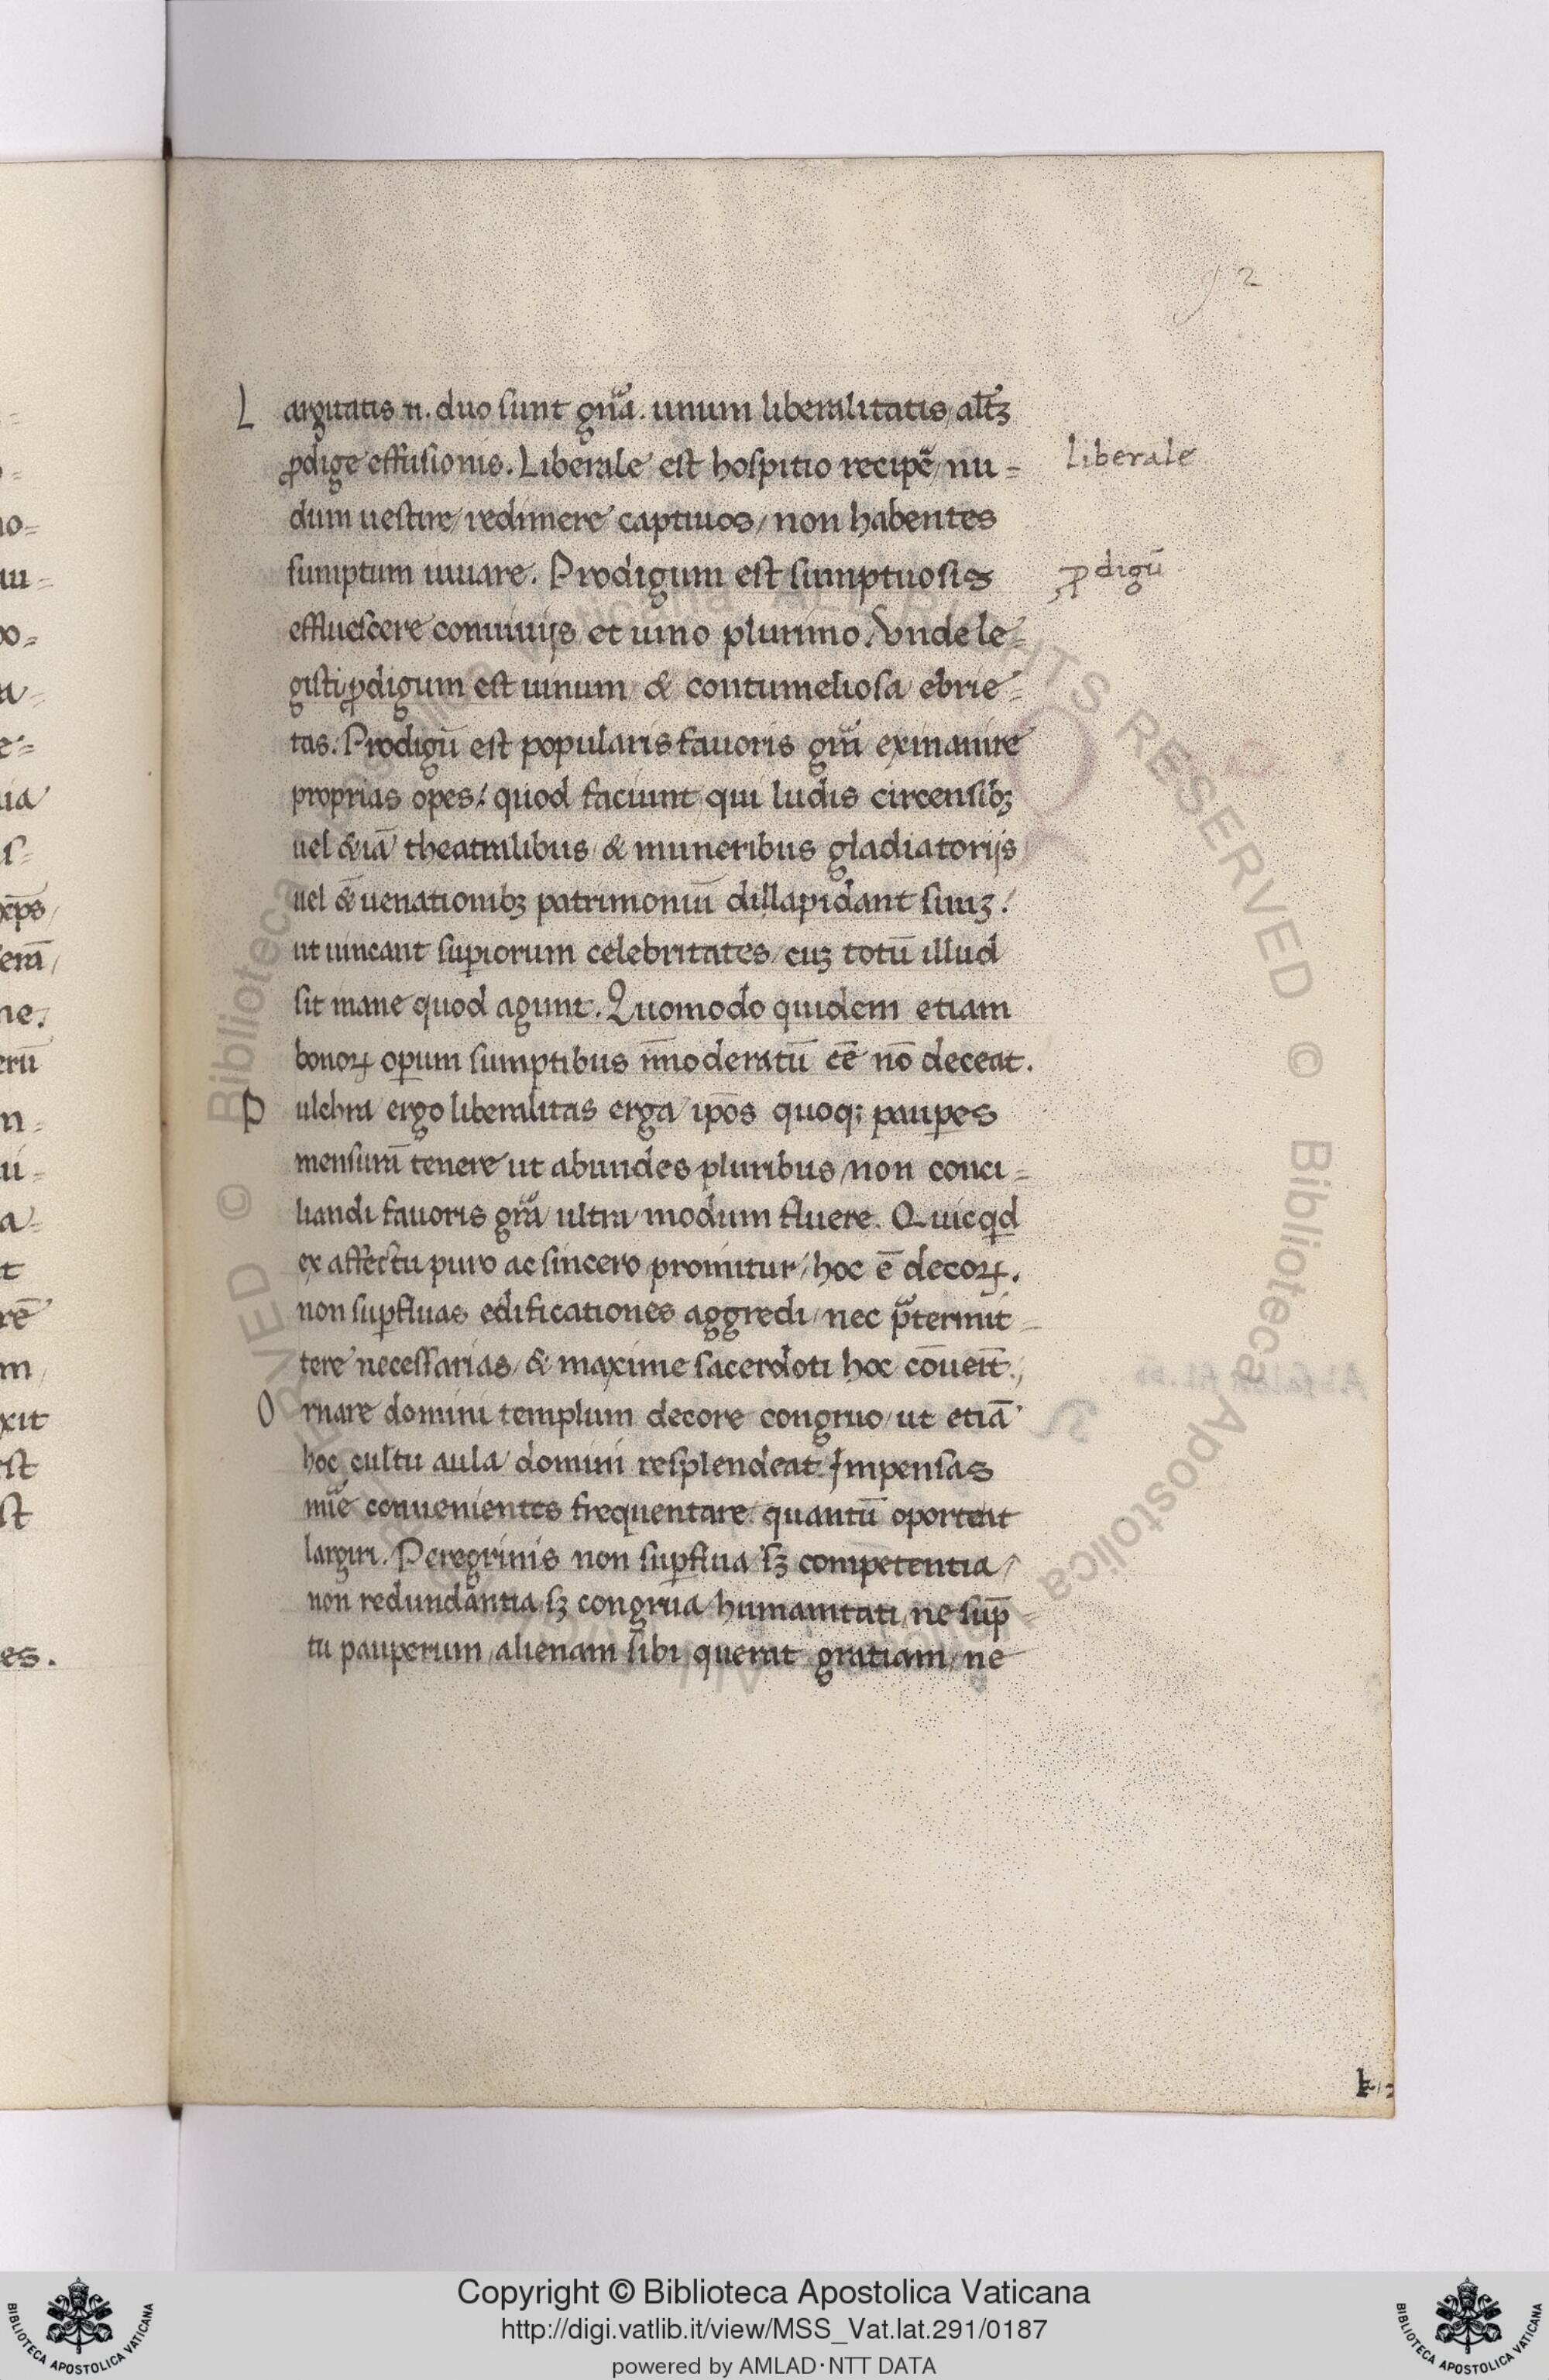 92
Largitatis n. duo sunt gña. unum liberalitatis, altꝫ
ꝓdige effusionis. Liberale est hospitio recipẽ, nu=
liberale
dum uestire, redimere captiuos, non habentes
sumptum iuuare. Prodigum est sumptuosis
ꝓdigū
effluescere conuiuijs et uino plurimo. Vnde le=
gisti, ꝓdigum est uinum & contumeliosa ebrie=
tas. Prodigū est popularis fauoris grã exinanire
proprias opes: quod faciunt qui ludis circensibꝫ
uel &iã theatralibus & muneribus gladiatorijs
uel &̃ uenationibꝫ patrimoniũ dillapidant suuꝫ:
ut uincant suꝑiorum celebritates, cuꝫ totū illud
sit inane quod agunt. Quomodo quidem etiam
bonoꝝ oꝑum sumptibus īmoderatū eē nō deceat.
Pulchra ergo liberalitas erga ip̄os quoqꝫ pauꝑes
mensurā tenere ut abundes pluribus, non conci=
liandi fauoris grã ultra modum fluere. Quicqd
ex affectu puro ac sincero promitur, hoc ē decoꝝ.
non suꝑfluas edificationes aggredi, nec p̃termit=
tere necessarias, & maxime sacerdoti hoc cōueit̄.
Ornare domini templum decore congruo, ut etiā
hoc cultu aula domini resplendeat. Impensas
mĩe conuenientes frequentare, quantū oporteat
largiri. Peregrinis non suꝑflua sꝫ competentia,
non redundantia, sꝫ congrua humanitati, ne sup̄
tu pauperum, alienam sibi querat gratiam, ne
k
Copyright © Biblioteca Apostolica Vaticana
http://digi.vatlib.it/view/MSS_Vat.lat.291/0187
powered by AMLAD·NTT DATA